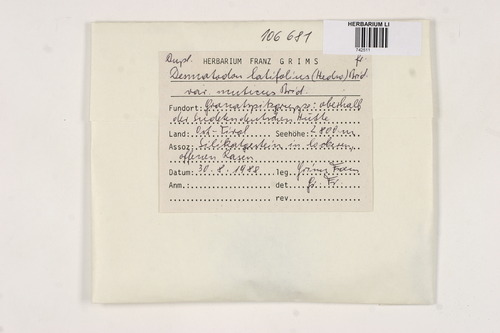 106681
HERBARIUM LI
742511
Dupl. HERBARIUM FRANZ GRIMS fr.
Desmatodon latifolius (Hedw.) Brid.
var. muticus Brid.
Fundort: Granatspitzgruppe: oberhalb
der Sudetendeutschen Hütte
Land: Ost-Tirol Seehöhe: 2800 m
Assoz: Silikatgestein in lockeren,
offenen Rasen
Datum: 30.8.1988 leg. Grims Franz
Anm.: det. Gr. Fr.
rev.